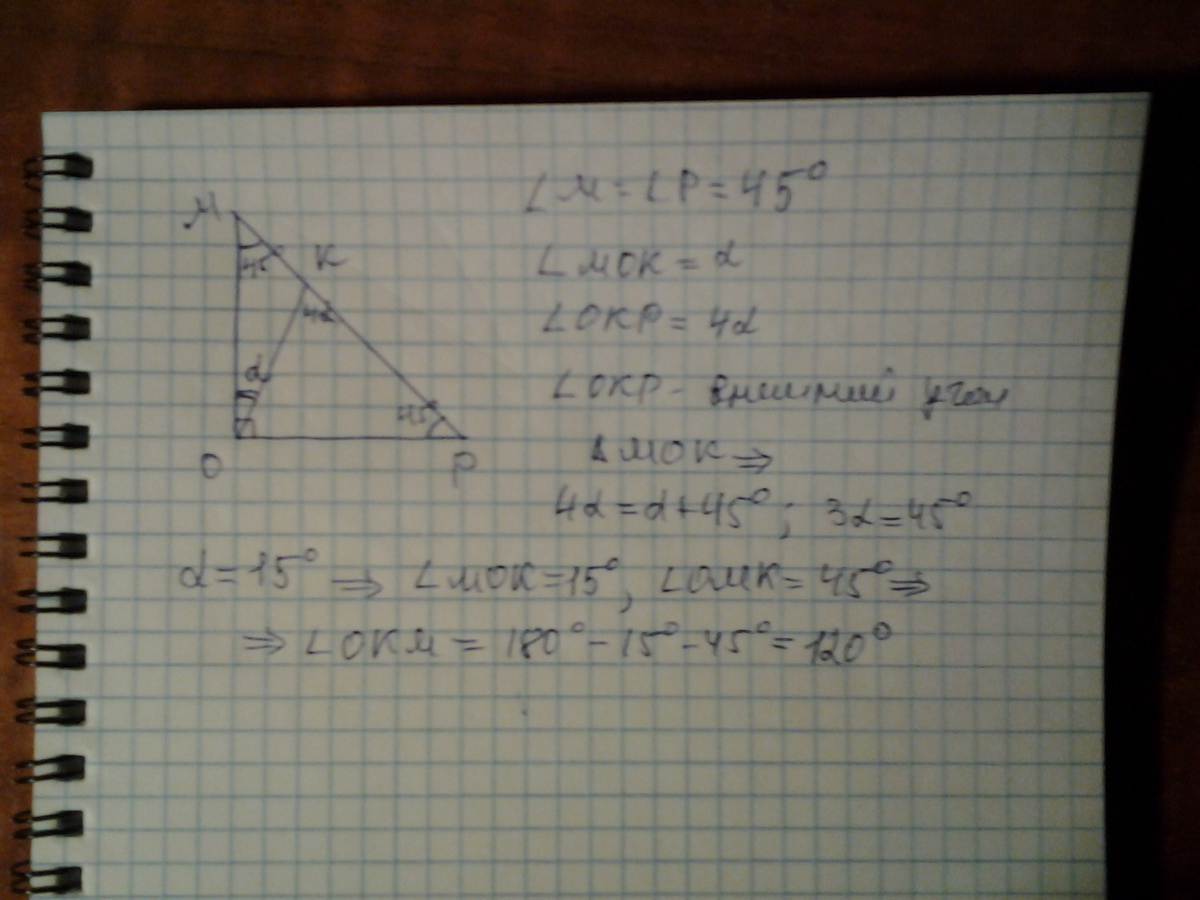 M
45
K
4α
α
45°
O
P
∠M = ∠P = 45°
∠MOK = α
∠OKP = 4α
∠OKP - внешний угол
ΔMOK ⇒
4α = α + 45° ; 3α = 45°
α = 15° ⇒ ∠MOK = 15°, ∠OMK = 45° ⇒
⇒ ∠OKM = 180° - 15° - 45° = 120°